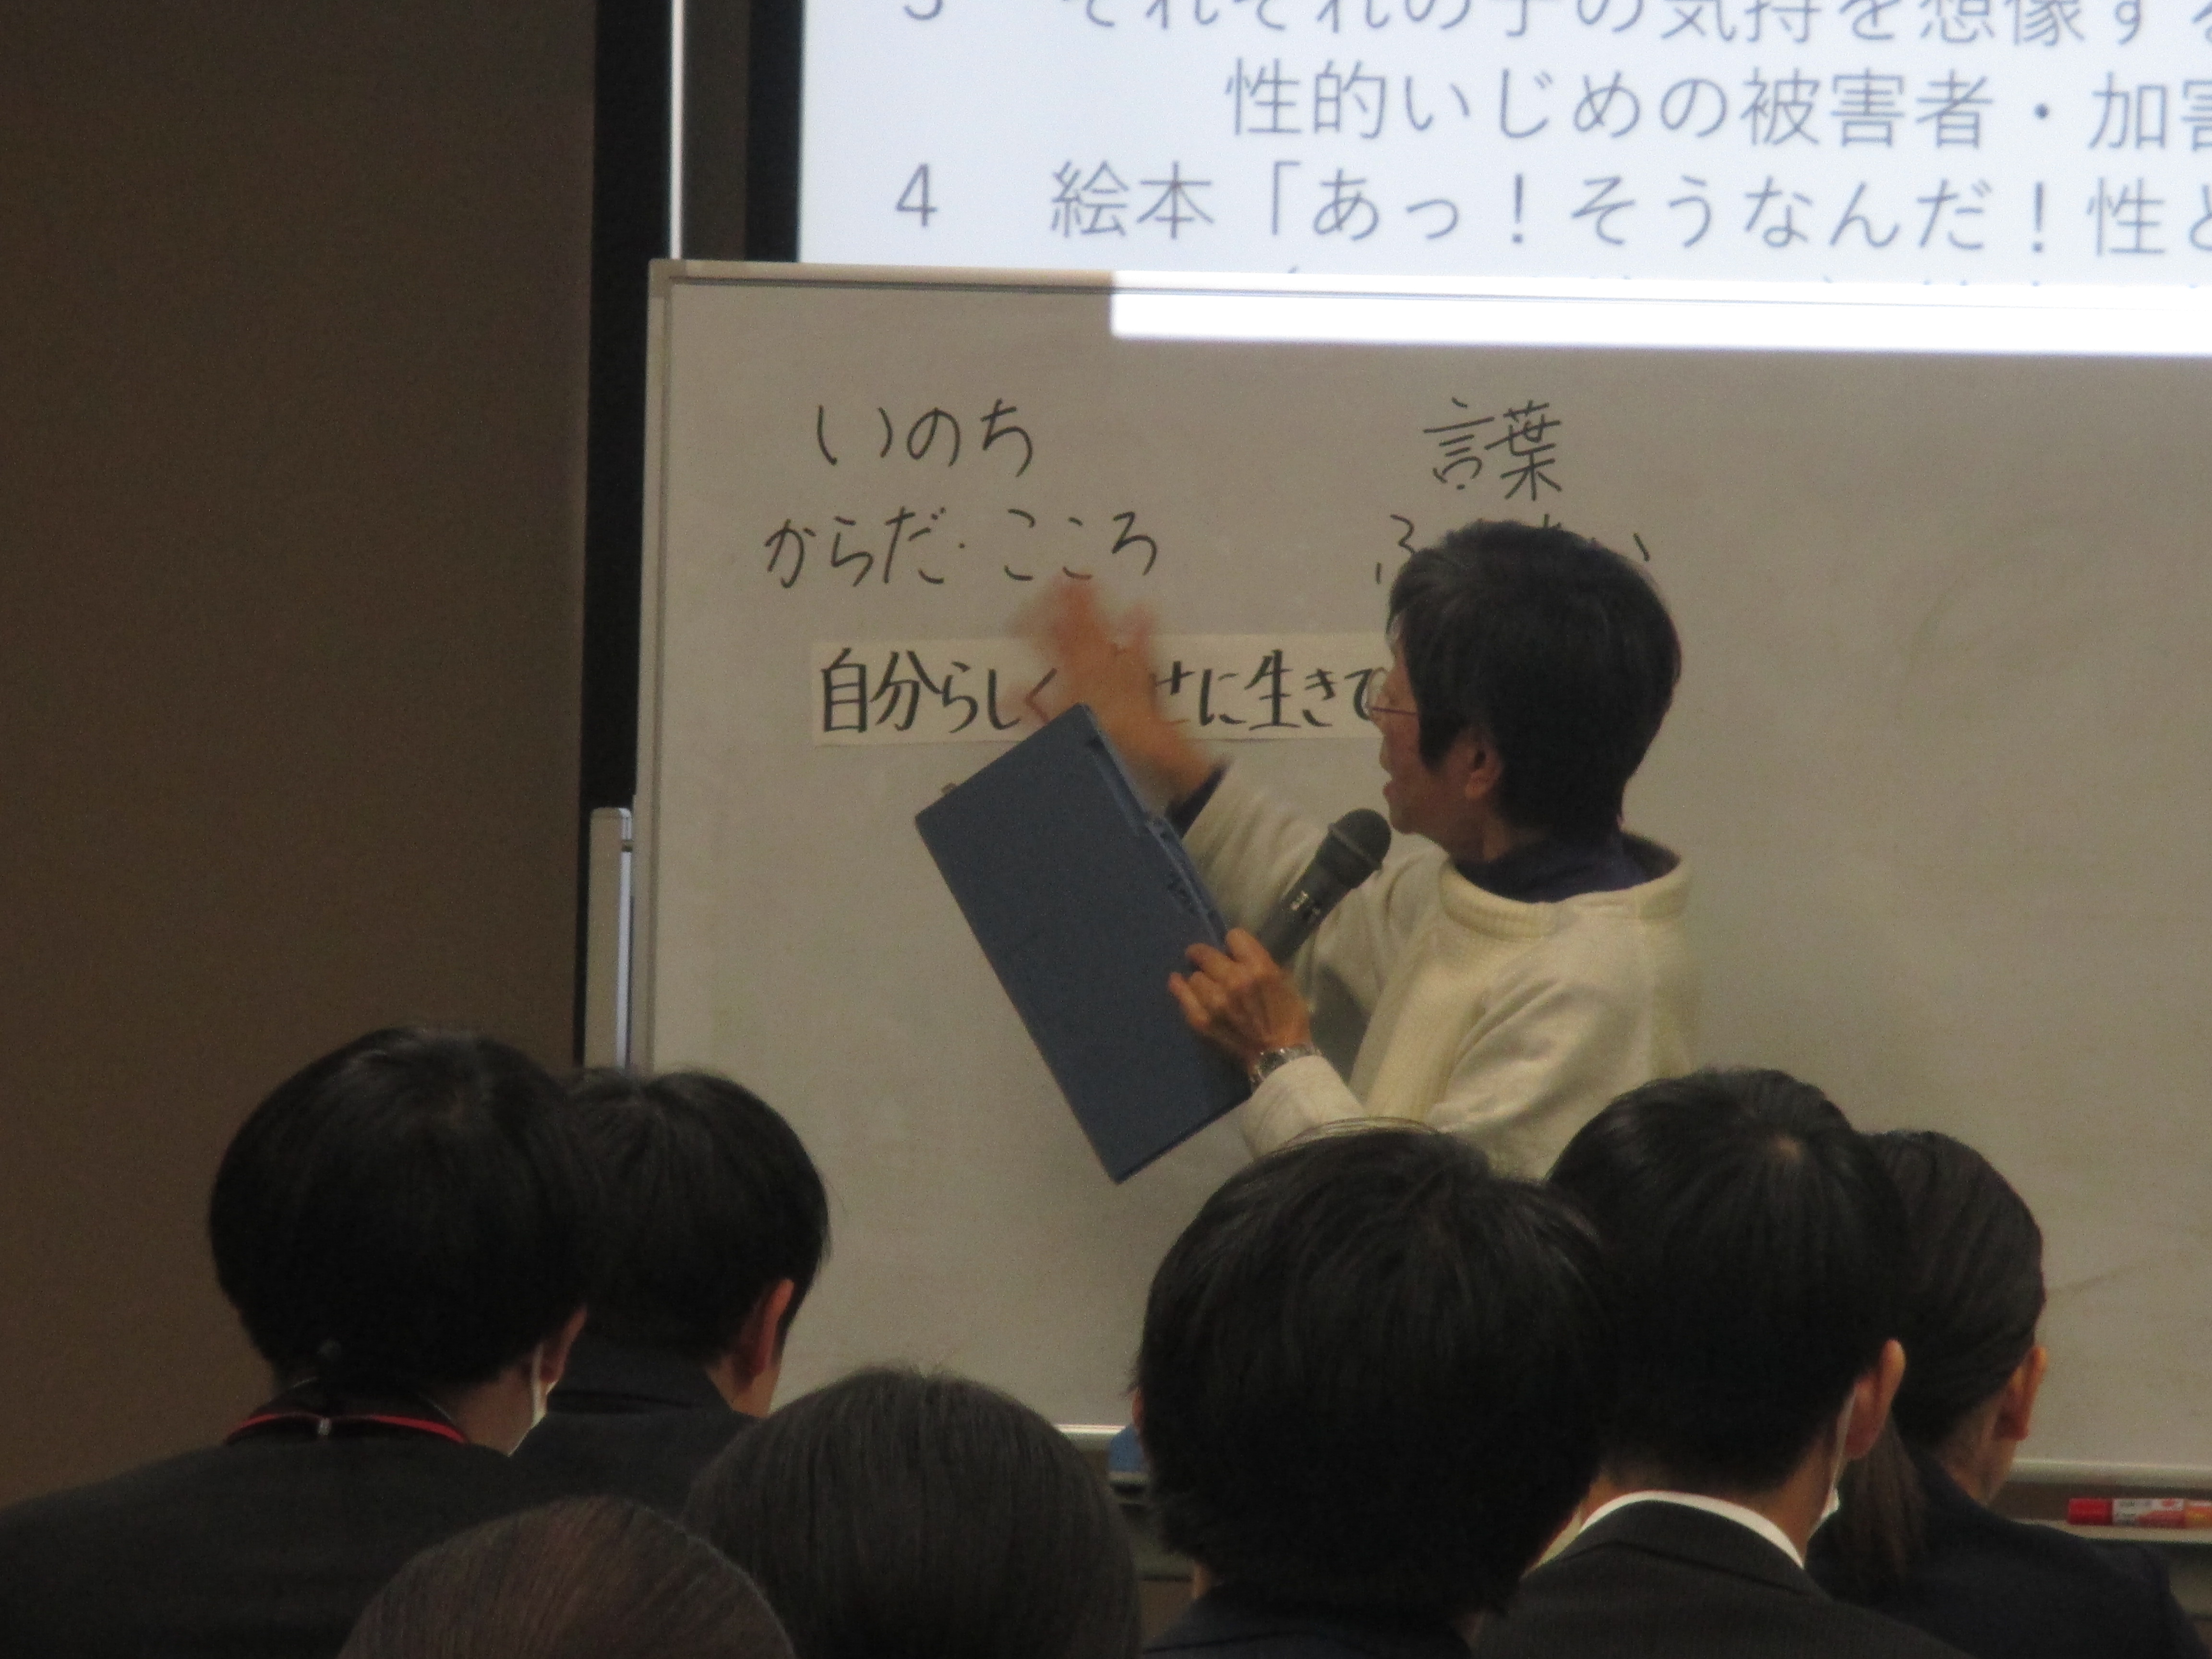 それぞれの子の気持を想像す
性的いじめの被害者・加害
4 絵本「あっ！そうなんだ！性と
いのち
言葉
からだ・こころ
自分らしく せに生きて